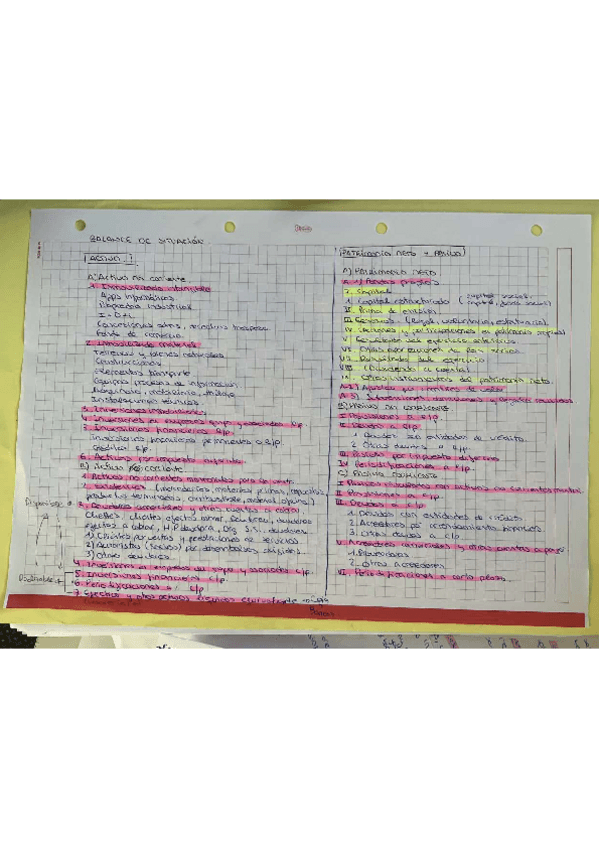 BALANCE DE SITUACIÓN
ACTIVO
A) Activo no corriente
1. Inmovilizado intangible
Apps informáticas
Propiedad industrial
I+D
Fondo de comercio
2. Inmovilizado material
Terrenos y bienes naturales
Construcciones
Elementos transporte
Equipos procesos de información
Mobiliario, maquinaria, utillaje
Instalaciones técnicas
3. Inversiones inmobiliarias
4. Inversiones en empresas grupo y asociadas l/p.
5. Inversiones financieras l/p.
Inversiones financieras permanentes a l/p.
Créditos l/p.
6. Activos por impuesto diferido
B) Activo corriente
1. Activos no corrientes mantenidos para la venta.
2. Existencias (mercaderías, materias primas, repuestos, productos terminados, combustible, material oficina)
3. Deudores comerciales y otras cuentas a cobrar
Clientes, clientes efectos cobrar, deudores, deudores efectos a cobrar, H.P. deudora, Org. S.S. deudores
1) Clientes por ventas y prestaciones de servicios.
2) Accionistas (socios) por desembolsos exigidos.
3) Otros deudores.
4. Inversiones en empresas del grupo y asociadas c/p.
5. Inversiones financieras c/p.
6. Periodificaciones a c/p.
7. Efectivo y otros activos líquidos equivalentes
Disponible +
PATRIMONIO NETO Y PASIVO
A) PATRIMONIO NETO
A.1) Fondos propios
I. Capital
1. Capital escriturado (capital social, capital, fondo social)
II. Prima de emisión
III. Reservas (legal, voluntaria, estatutaria)
IV. (Acciones y participaciones en patrimonio propias)
V. Resultados del ejercicio anteriores
VI. Otras aportaciones de los socios
VII. Resultado del ejercicio
VIII. (Dividendo a cuenta)
IX. Otros instrumentos del patrimonio neto.
A.2) Ajustes por cambios de valor
A.3) Subvenciones donaciones y legados recibidos
B) PASIVO NO CORRIENTE
I. Provisiones a l/p.
II. Deudas a l/p.
1. Deudas con entidades de crédito.
2. Otras deudas a l/p.
III. Pasivos por impuesto diferido
IV. Periodificaciones a l/p.
C) PASIVO CORRIENTE
II. Provisiones a c/p.
III. Deudas a c/p.
1. Deudas con entidades de crédito.
2. Acreedores por arrendamiento financiero
3. Otras deudas a c/p
V. Acreedores comerciales y otras cuentas a pagar
1. Proveedores
2. Otros acreedores
VI. Periodificaciones a corto plazo.